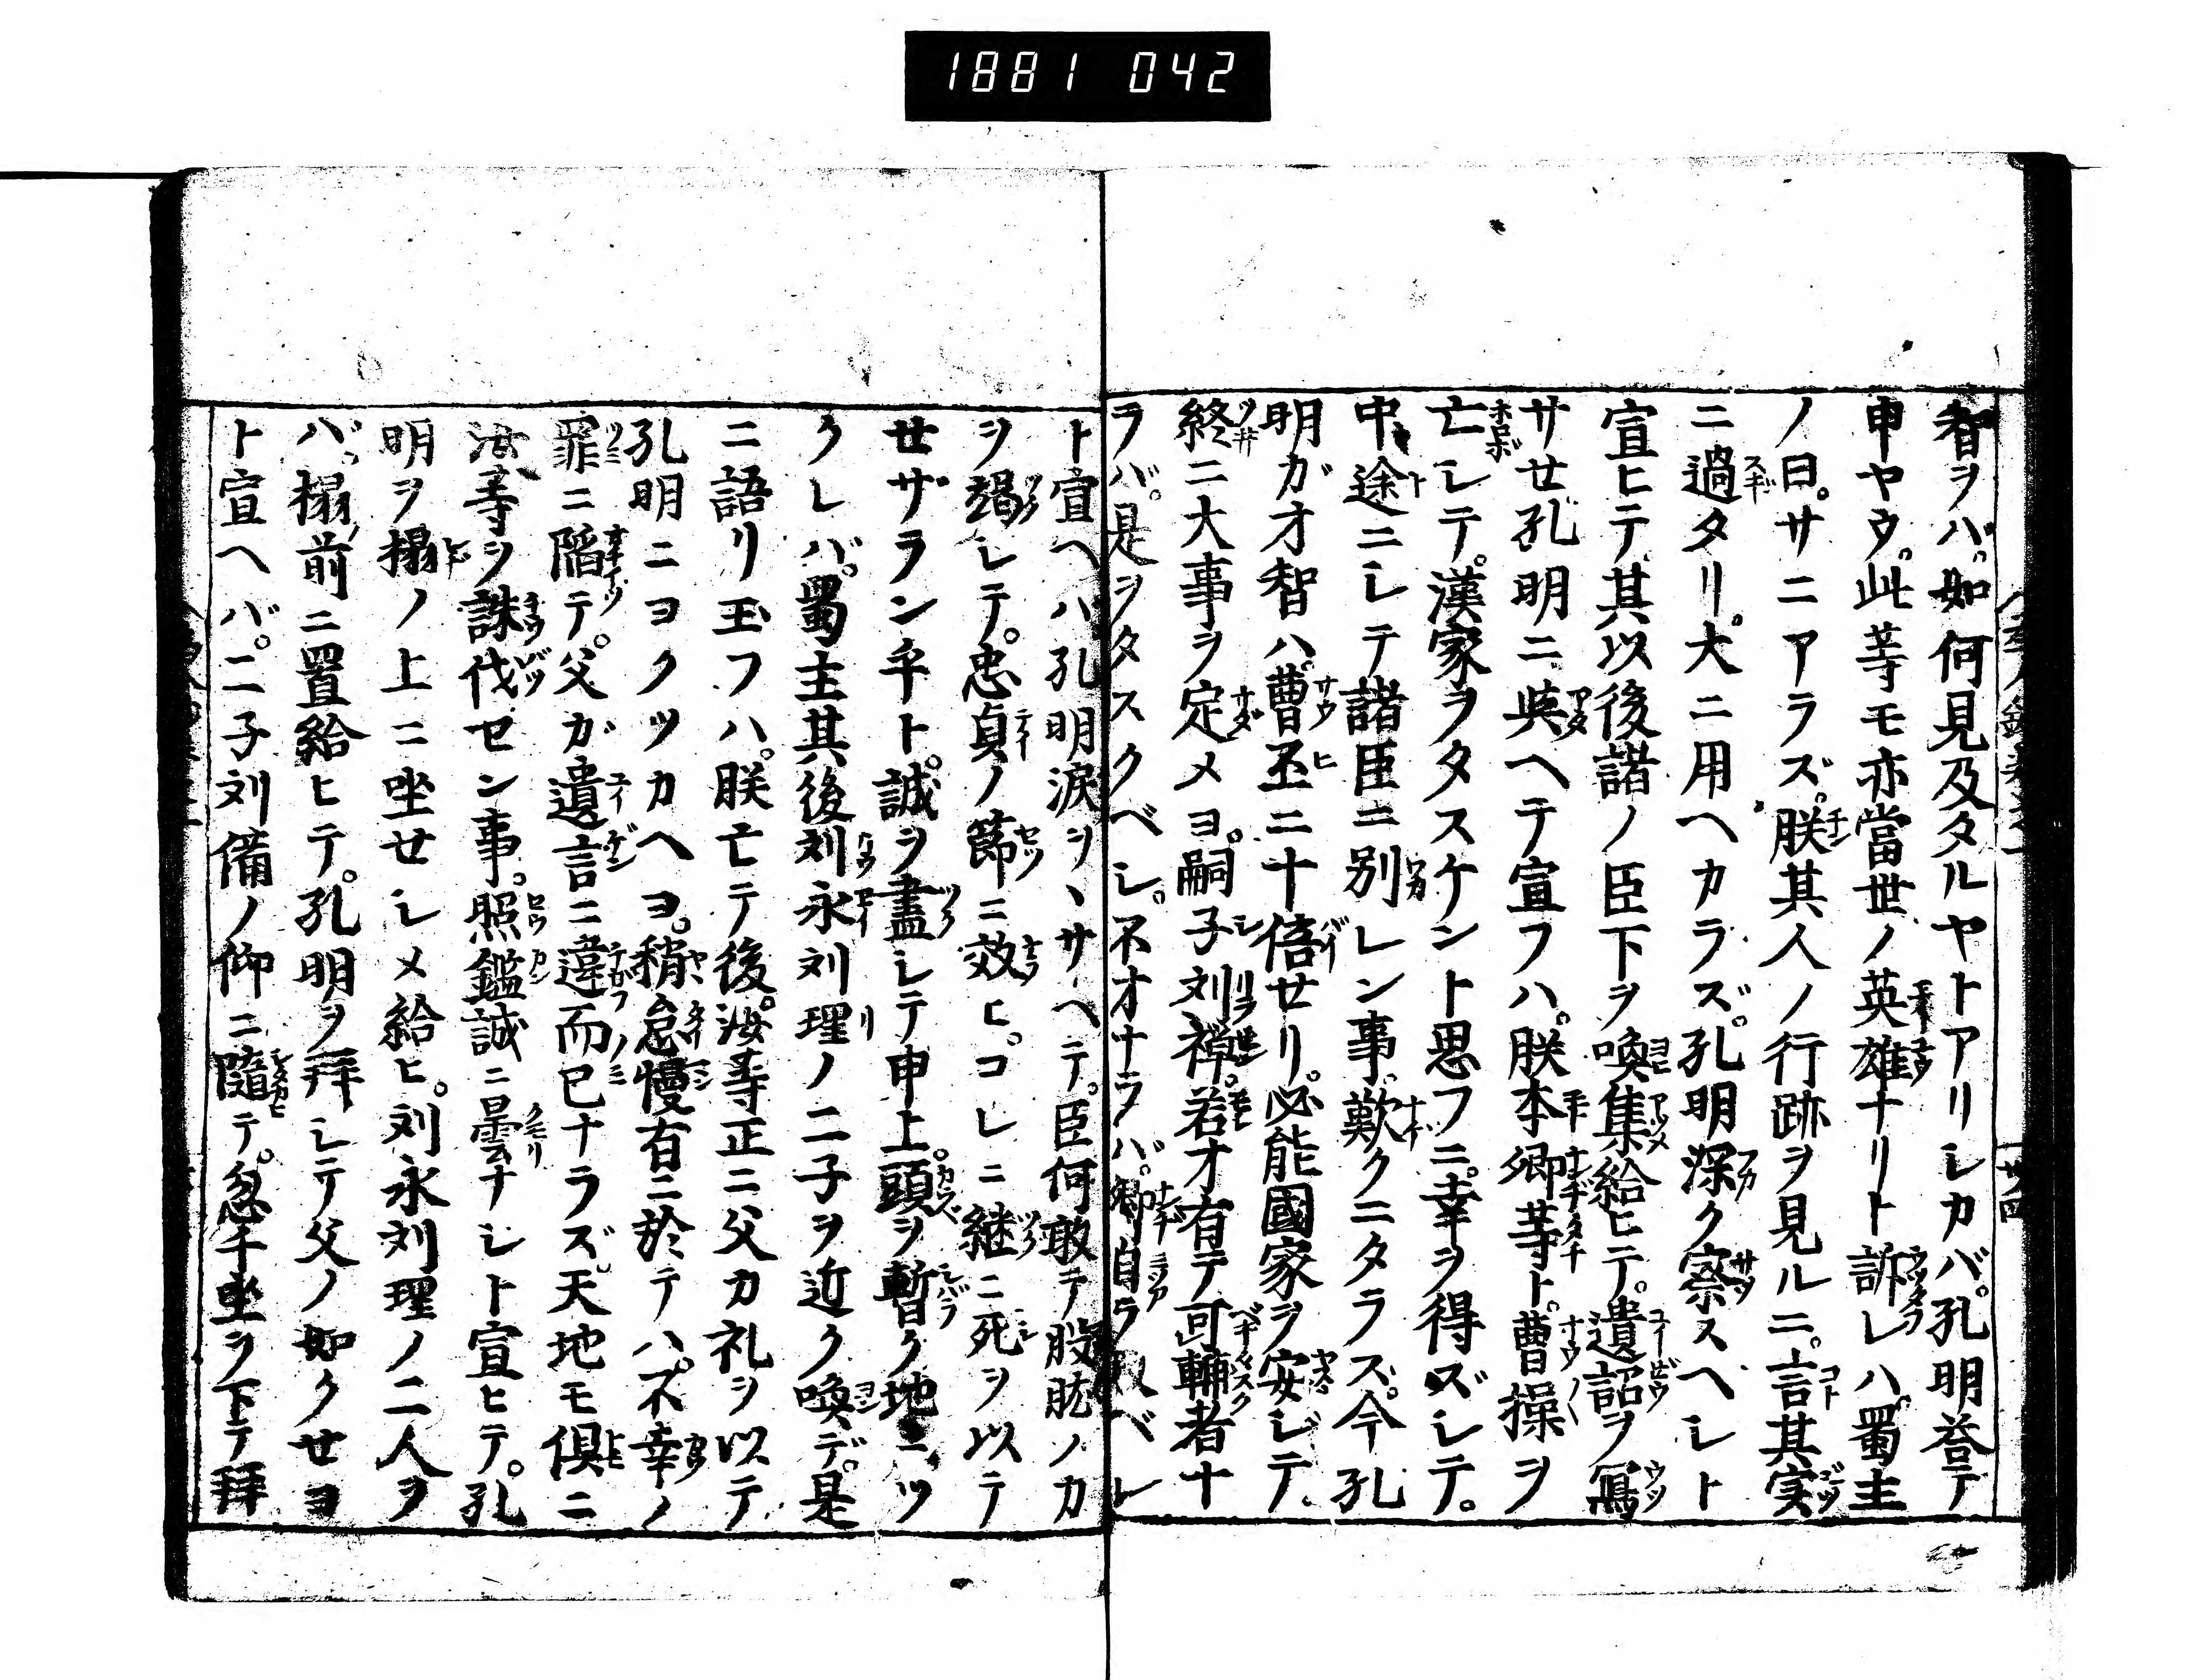 1881 042
智ヲバ。如何見及タルヤトアリシカバ。孔明荅テ
申ヤウ。此等モ亦當世ノ英雄ナリト訴レハ。蜀主
ノ曰。サニアラズ。朕其人ノ行跡ヲ見ルニ。言其実
ニ過タリ。大ニ用ヘカラズ。孔明深ク察スヘシト
宣ヒテ其以後諸ノ臣下ヲ喚集給ヒテ。遺詔ヲ寫
サセ孔明ニ與ヘテ宣フハ。朕本卿等ト。曹操ヲ
亡シテ。漢家ヲタスケント思フニ。幸ヲ得ズシテ。
中途ニシテ諸臣ニ別レン事。歎クニタラス。今孔
明ガオ智ハ。曹丕ニ十倍セリ。必能國家ヲ安ジテ。
終ニ大事ヲ定メヨ。嗣子刘禅。若才有テ可輔者ナ
ラバ。是ヲタスクベシ。不才ナラバ。卿自ラ取ベシ
ト宣ヘハ孔明涙ヲヽサヘテ。臣何敢テ股肱ノカ
ヲ竭シテ。忠貞ノ節ニ效ヒ。コレニ継ニ死ヲ以テ
せザラン乎ト。誠ヲ盡シテ申上。頭ヲ暫ク地ニツ
クレバ。蜀主其後刘永刘理ノ二子ヲ近ク喚デ。是
ニ語リ玉フハ。朕亡テ後。汝等正ニ父カ礼ヲ以テ
孔明ニヨクツカヘヨ。稍怠慢有ニ於テハ。不幸ノ
罪ニ陷テ。父ガ遺言ニ違而已ナラズ。天地モ倶ニ
汝等ヲ誅伐セン事。照鑑誠ニ曇ナシト宣ヒテ。孔
明ヲ搨ノ上ニ坐せシメ給ヒ。刘永刘理ノ二人ヲ
バ。搨前ニ置給ヒテ。孔明ヲ拜シテ父ノ如クせヨ
ト宣ヘバ。二子刘備ノ仰ニ隨テ。忽チ坐ヲ下テ拜